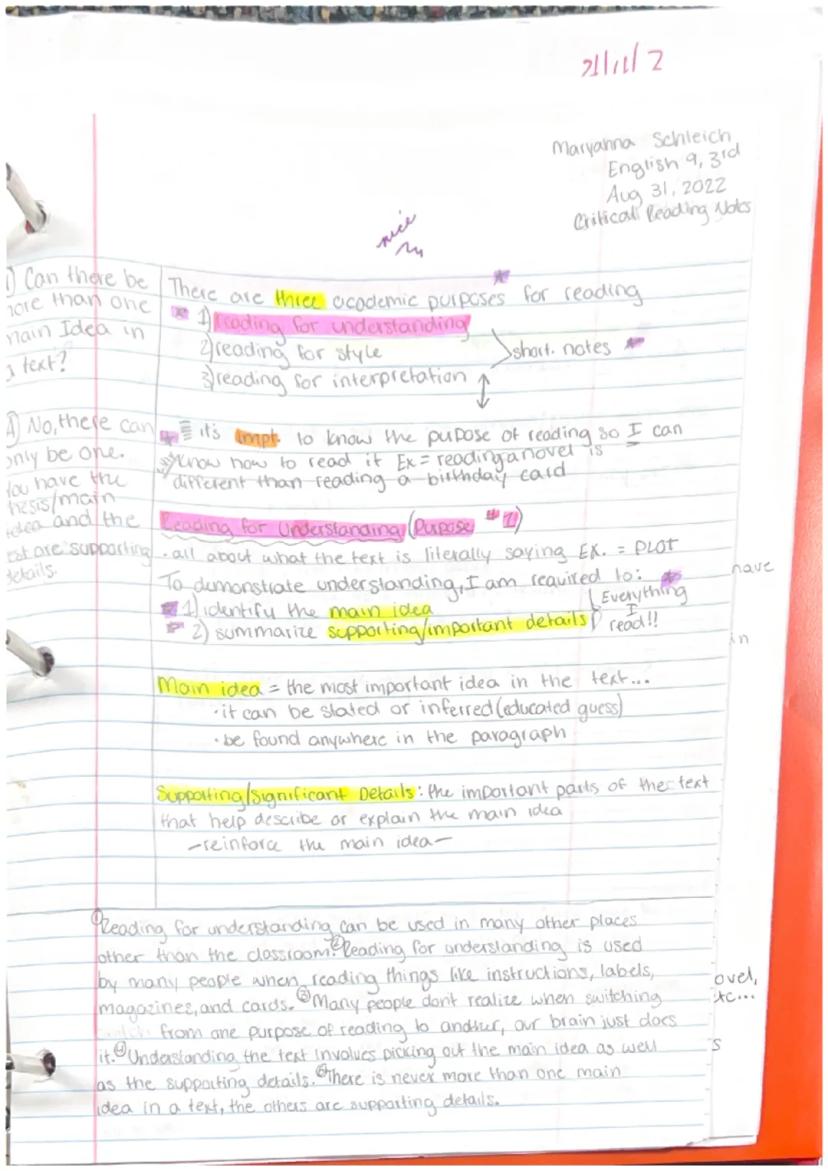 Maryanna Schleich
English 9, 3rd
Aug 31, 2022
Critical Reading Notes
nice
Can there be
more than one
main Idea in
a text?
A) No, there can
only be one.
You have the
thesis/main
idea and the
rest are supporting
details.
There are three academic purposes for reading
1) reading for understanding
2) reading for style
3) reading for interpretation
short. notes
it's impt. to know the purpose of reading so I can
know how to read it Ex = reading a novel is
different than reading a birthday card
Reading for Understanding (Purpose #1)
· all about what the text is literally saying EX. = PLOT
To demonstrate understanding, I am required to:
1) identify the main idea
2) summarize supporting/important details
Everything
I
read!!
Main idea = the most important idea in the text...
· it can be stated or inferred (educated guess)
· be found anywhere in the paragraph
Supporting/Significant Details: the important parts of the text
that help describe or explain the main idea
-reinforce the main idea-
① Reading for understanding can be used in many other places
other than the classroom. ② Reading for understanding is used
by many people when reading things like instructions, labels,
magazines, and cards. ③ Many people don't realize when switching
from one purpose of reading to another, our brain just does
it. ④ Understanding the text involves picking out the main idea as well
as the supporting details. ⑤ There is never more than one main
idea in a text, the others are supporting details.
have
in
ovel,
tc...
s